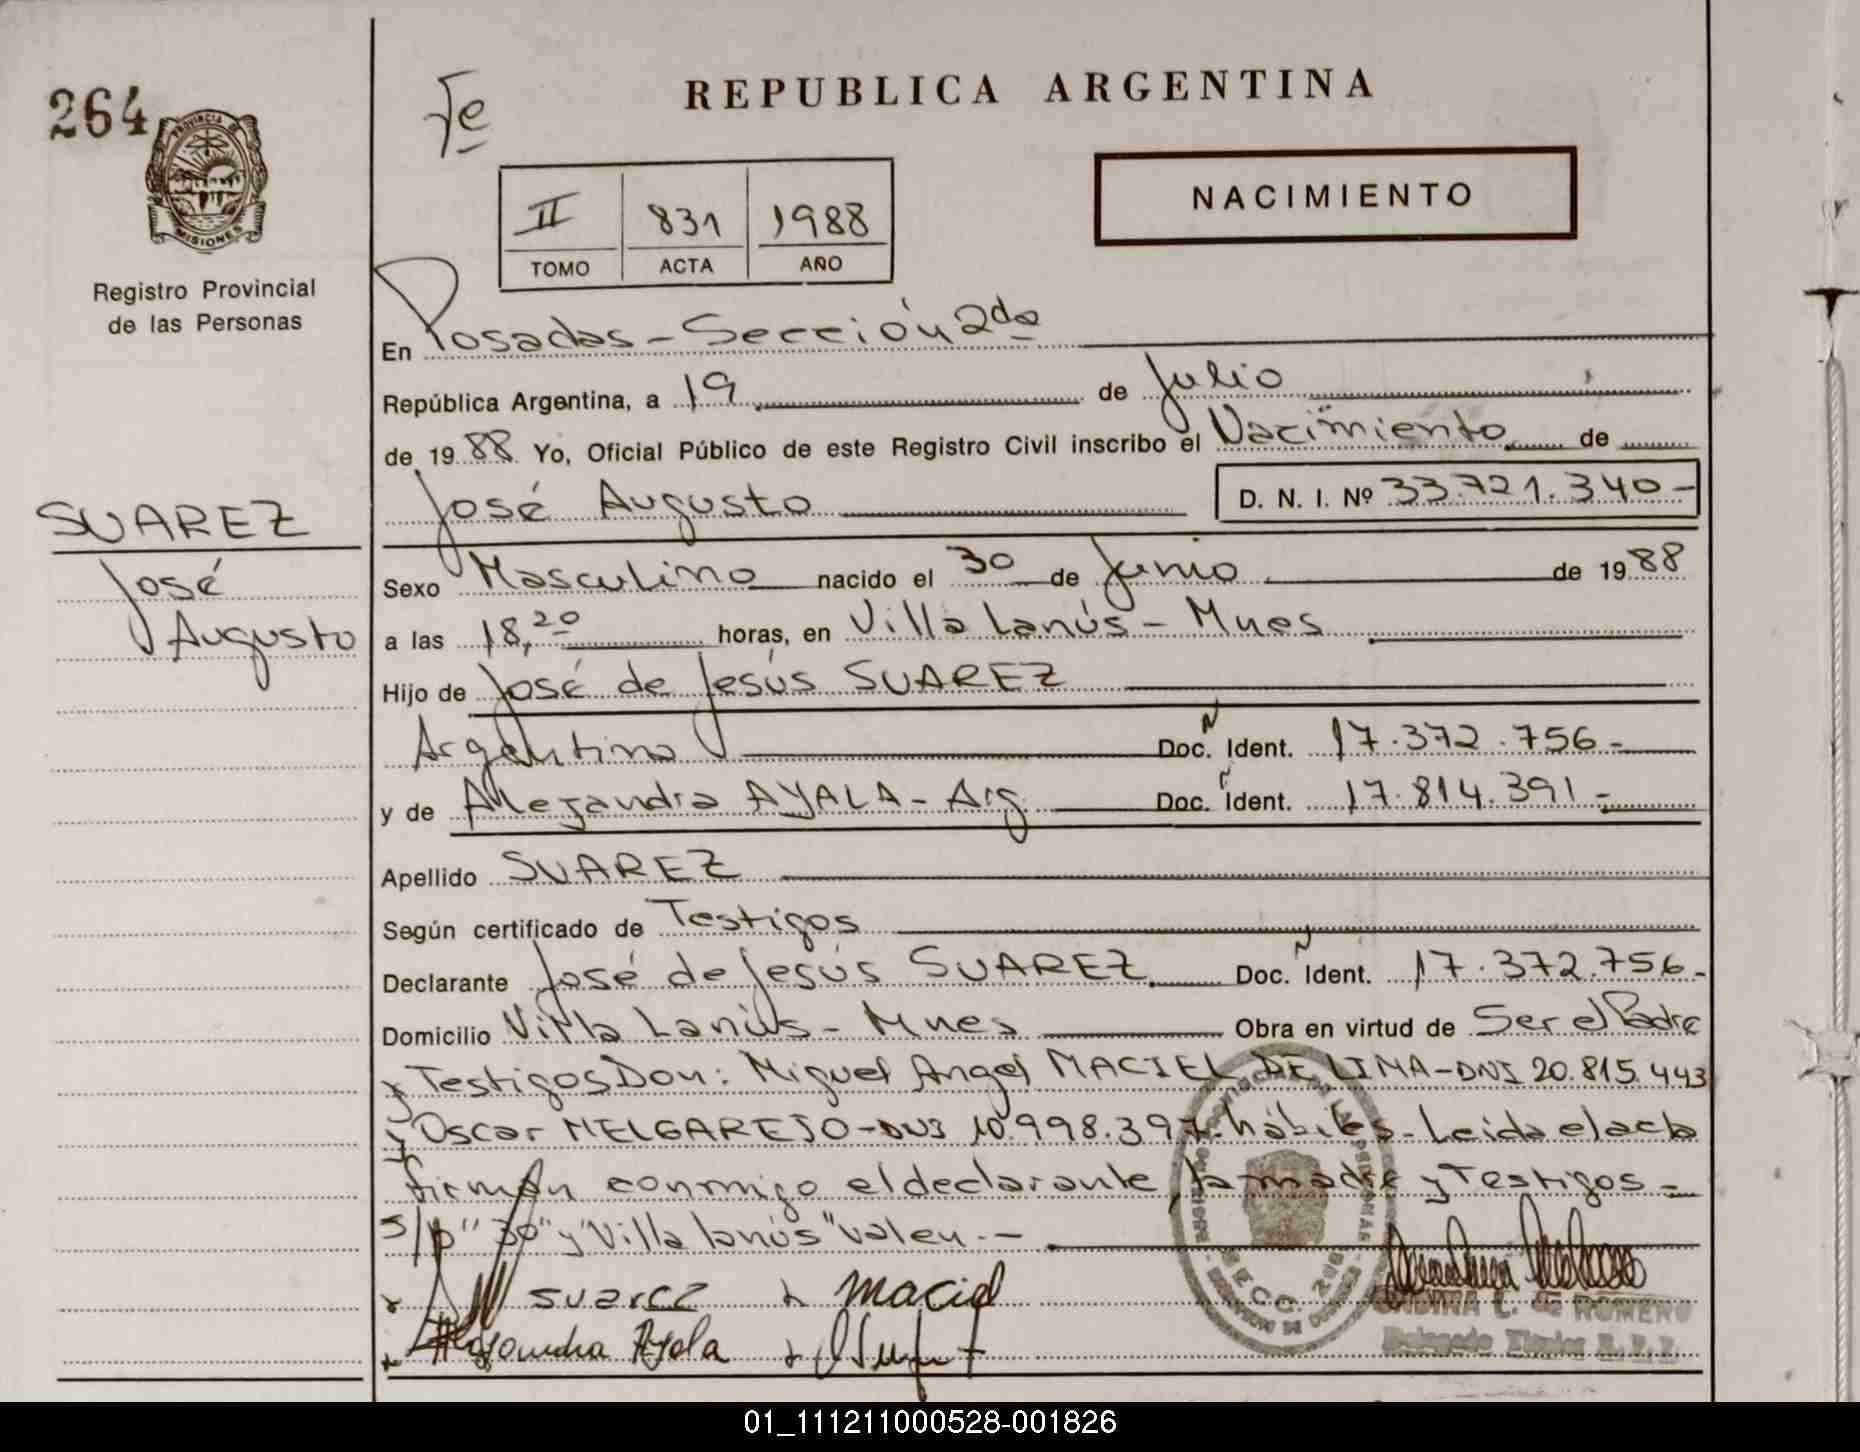 264
PROVINCIA DE
MISIONES
Registro Provincial
de las Personas
REPUBLICA ARGENTINA
II 831 1988
TOMO ACTA AÑO
NACIMIENTO
En Posadas - Sección 2da
República Argentina, a 19 de Julio
de 1988 Yo, Oficial Público de este Registro Civil inscribo el Nacimiento de
José Augusto D. N. I. Nº 33.721.340-
SUAREZ
José
Augusto
Sexo Masculino nacido el 30 de Junio de 1988
a las 18,20 horas, en Villa Lanús - Mnes
Hijo de José de Jesús SUAREZ
Argentino Doc. Ident. 17.372.756-
y de Alejandra AYALA - Arg. Doc. Ident. 17.814.391-
Apellido SUAREZ
Según certificado de Testigos
Declarante José de Jesús SUAREZ Doc. Ident. 17.372.756-
Domicilio Villa Lanús - Mnes Obra en virtud de Ser el Padre
y Testigos Don: Miguel Angel MACIEL DE LIMA - DNI 20.815.443
y Oscar MELGAREJO - DNI 10.998.397. hábiles - Leída el acta
firman conmigo el declarante, la madre y Testigos -
s/p "30" y "Villa lanús" valen. -
Suarez x Maciel
Alejandra Ayala x
C. de ROMERO
01_111211000528-001826